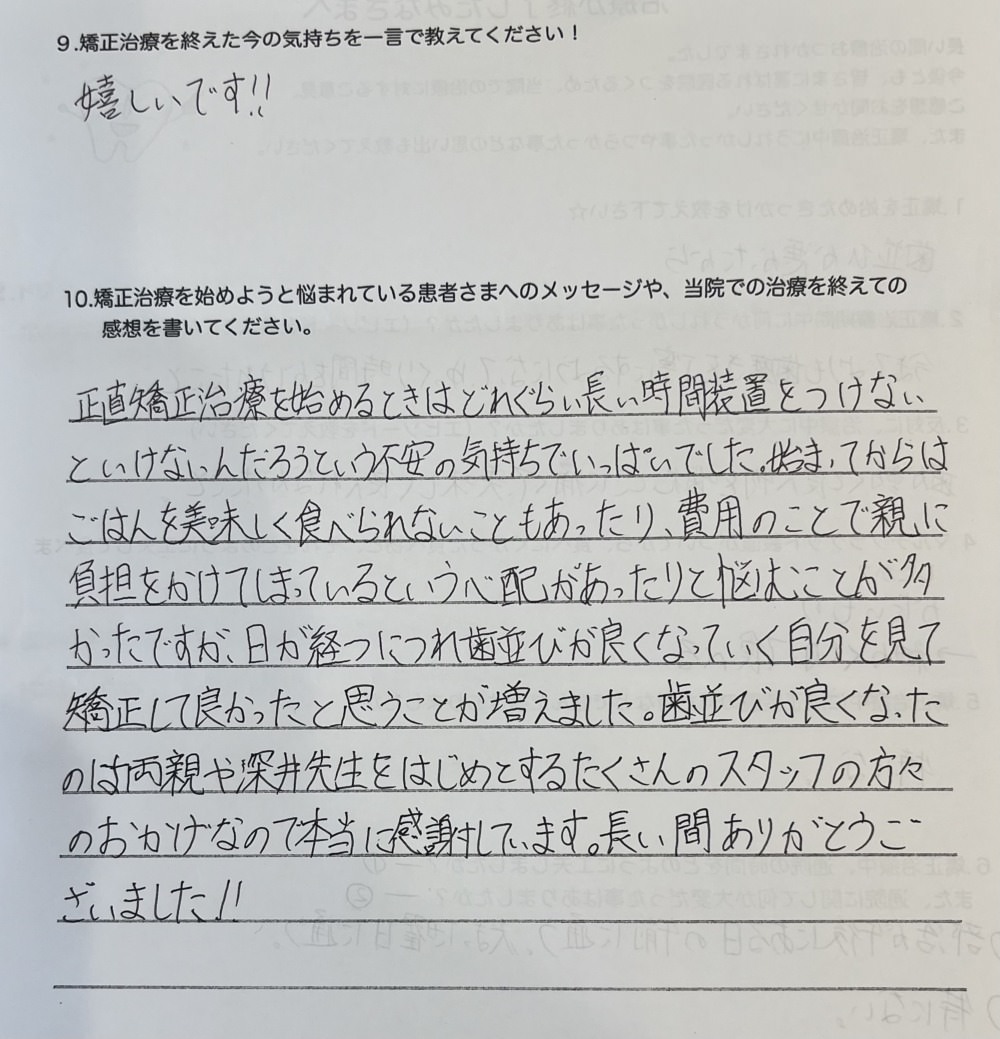 9.矯正治療を終えた今の気持ちを一言で教えてください！
嬉しいです!!
10.矯正治療を始めようと悩まれている患者さまへのメッセージや、当院での治療を終えての
感想を書いてください。
正直矯正治療を始めるときはどれぐらい長い時間装置をつけない
といけないんだろうという不安の気持ちでいっぱいでした。始まってからは
ごはんを美味しく食べられないこともあったり、費用のことで親に
負担をかけてしまっているという心配があったりと悩むことが多
かったですが、日が経つにつれ歯並びが良くなっていく自分を見て
矯正して良かったと思うことが増えました。歯並びが良くなった
のは両親や深井先生をはじめとするたくさんのスタッフの方々
のおかげなので本当に感謝しています。長い間ありがとうご
ざいました!!